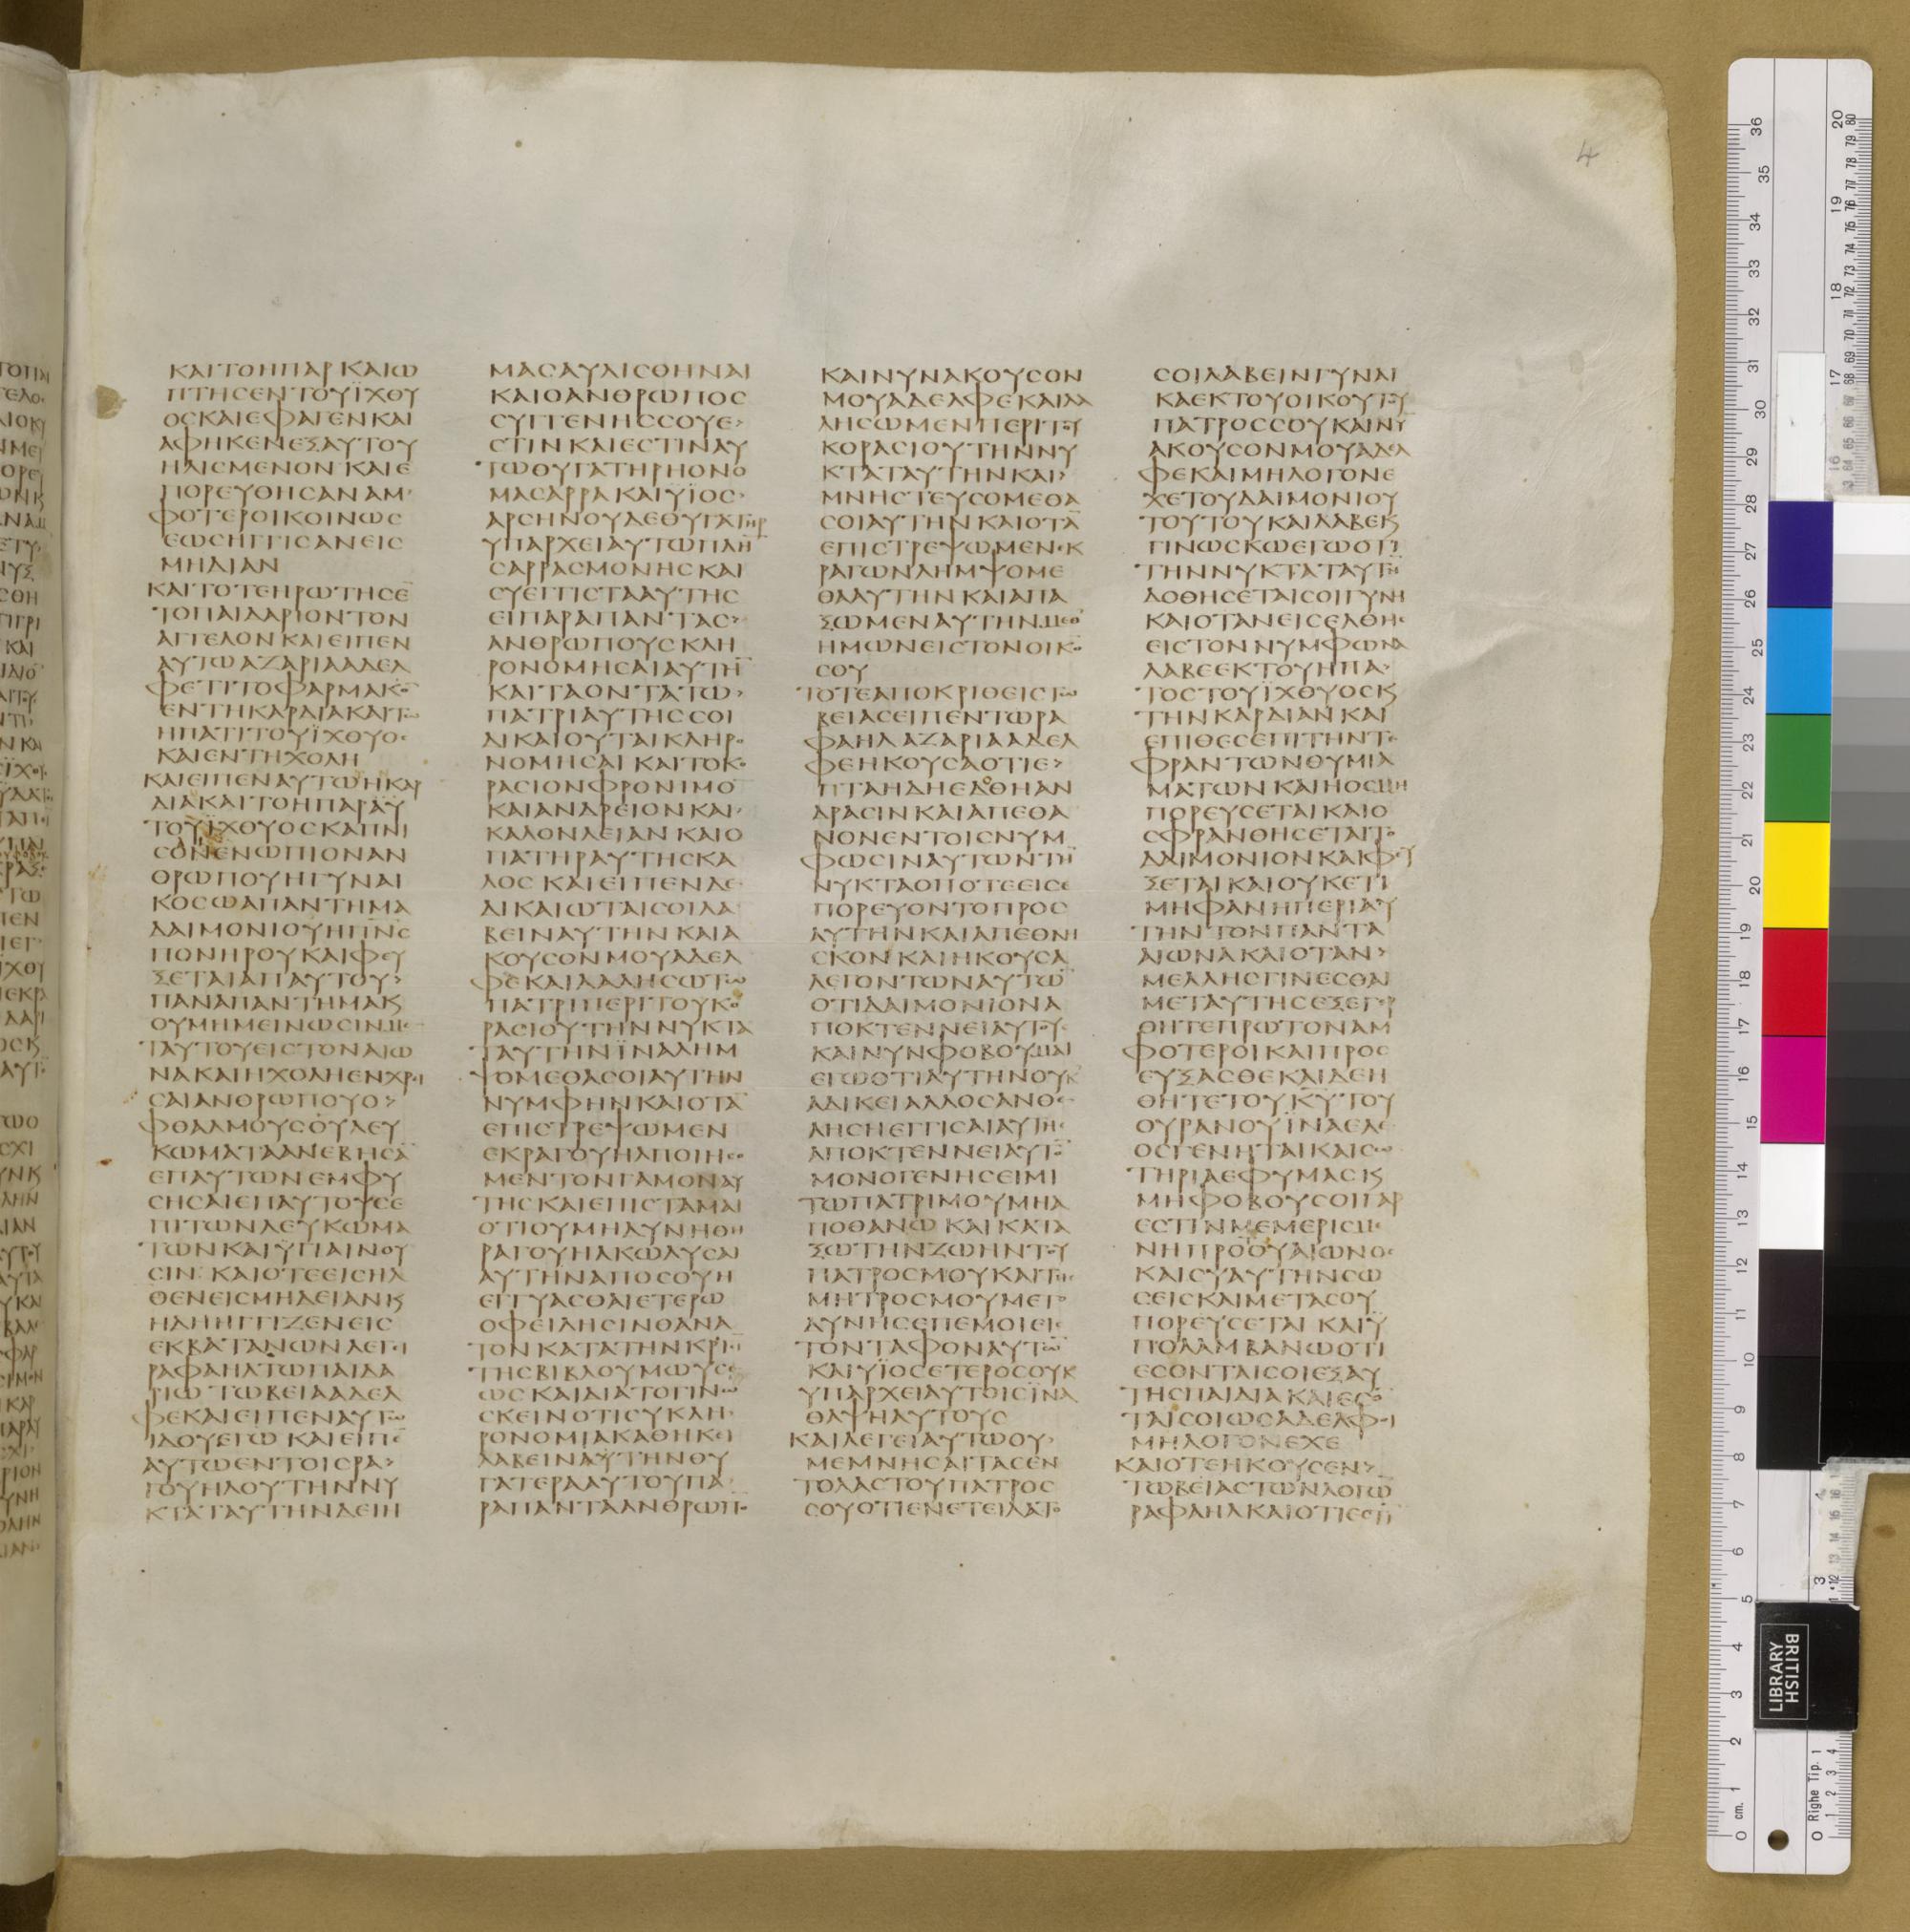 4
ΚΑΙΤΟΗΠΑΡΚΑΙΩ
ΠΤΗϹΕΝΤΟΥΪΧΟΥ
ΟϹΚΑΙΕΦΑΓΕΝΚΑΙ
ΑΦΗΚΕΝΕΞΑΥΤΟΥ
ΗΛΙϹΜΕΝΟΝΚΑΙΕ
ΠΟΡΕΥΘΗϹΑΝΑΜ
ΦΟΤΕΡΟΙΚΟΙΝΩϹ
ΕΩϹΗΓΓΙϹΑΝΕΙϹ
ΜΗΔΙΑΝ
ΚΑΙΤΟΤΕΗΡΩΤΗϹΕ̄
ΤΟΠΑΙΔΑΡΙΟΝΤΟΝ
ΑΓΓΕΛΟΝΚΑΙΕΙΠΕΝ
ΑΥΤΩΑΖΑΡΙΑΑΔΕΛ
ΦΕΤΙΤΟΦΑΡΜΑΚΟ̄
ΕΝΤΗΚΑΡΔΙΑΚΑΙΤΩ
ΗΠΑΤΙΤΟΥΪΧΘΥΟϹ
ΚΑΙΕΝΤΗΧΟΛΗ
ΚΑΙΕΙΠΕΝΑΥΤΩΗΚΑΡ
ΔΙΑΚΑΙΤΟΗΠΑΡΑΥ
ΤΟΥΪΧΘΥΟϹΚΑΠΝΙ
ϹΟΝΕΝΩΠΙΟΝΑΝ
ΘΡΩΠΟΥΗΓΥΝΑΙ
ΚΟϹΩΑΠΑΝΤΗΜΑ
ΔΑΙΜΟΝΙΟΥΗΠΝ̅Α
ΠΟΝΗΡΟΥΚΑΙΦΕΥ
ΞΕΤΑΙΑΠΑΥΤΟΥ›
ΠΑΝΑΠΑΝΤΗΜΑΚϗ
ΟΥΜΗΜΕΙΝΩϹΙΝΜΕ
ΤΑΥΤΟΥΕΙϹΤΟΝΑΙΩ
ΝΑΚΑΙΗΧΟΛΗΕΝΧΡΙ
ϹΑΙΑΝΘΡΩΠΟΥΟ›
ΦΘΑΛΜΟΥϹΟΥΛΕΥ
ΚΩΜΑΤΑΑΝΕΒΗϹᾹ
ΕΠΑΥΤΩΝΕΜΦΥ
ϹΗϹΑΙΕΠΑΥΤΟΥϹΕ
ΠΙΤΩΝΛΕΥΚΩΜΑ
ΤΩΝΚΑΙΫΓΙΑΙΝΟΥ
ϹΙΝ ΚΑΙΟΤΕΕΙϹΗΛ
ΘΕΝΕΙϹΜΗΔΕΙΑΝΚϗ
ΗΔΗΗΓΓΙΖΕΝΕΙϹ
ΕΚΒΑΤΑΝΩΝΛΕΓΕΙ
ΡΑΦΑΗΛΤΩΠΑΙΔΑ
ΡΙΩ ΤΩΒΕΙΑΑΔΕΛ
ΦΕΚΑΙΕΙΠΕΝΑΥΤΩ
ΙΔΟΥΕΓΩ ΚΑΙΕΙΠΕ̄
ΑΥΤΩΕΝΤΟΙϹΡΑ›
ΓΟΥΗΛΟΥΤΗΝΝΥ
ΚΤΑΤΑΥΤΗΝΔΕΙΗ
ΜΑϹΑΥΛΙϹΘΗΝΑΙ
ΚΑΙΟΑΝΘΡΩΠΟϹ
ϹΥΓΓΕΝΗϹϹΟΥΕ›
ϹΤΙΝΚΑΙΕϹΤΙΝΑΥ
ΤΩΘΥΓΑΤΗΡΗΟΝΟ
ΜΑϹΑΡΡΑΚΑΙΫΪΟϹ›
ΑΡϹΗΝΟΥΔΕΘΥΓΑΤΗΡ
ΥΠΑΡΧΕΙΑΥΤΩΠΛΗ̄
ϹΑΡΡΑϹΜΟΝΗϹΚΑΙ
ϹΥΕΓΓΙϹΤΑΑΥΤΗϹ
ΕΙΠΑΡΑΠΑΝΤΑϹ›
ΑΝΘΡΩΠΟΥϹΚΛΗ
ΡΟΝΟΜΗϹΑΙΑΥΤΗ̄
ΚΑΙΤΑΟΝΤΑΤΩ›
ΠΑΤΡΙΑΥΤΗϹϹΟΙ
ΔΙΚΑΙΟΥΤΑΙΚΛΗΡΟ
ΝΟΜΗϹΑΙ ΚΑΙΤΟΚΟ
ΡΑϹΙΟΝΦΡΟΝΙΜΟ
ΚΑΙΑΝΔΡΕΙΟΝΚΑΙ›
ΚΑΛΟΝΛΕΙΑΝ ΚΑΙΟ
ΠΑΤΗΡΑΥΤΗϹΚΑ
ΛΟϹ ΚΑΙΕΙΠΕΝΔΕ
ΔΙΚΑΙΩΤΑΙϹΟΙΛΑ
ΒΕΙΝΑΥΤΗΝ ΚΑΙΑ
ΚΟΥϹΟΝΜΟΥΑΔΕΛ
ΦΕΚΑΙΛΑΛΗϹΩΤΩ
ΠΑΤΡΙΠΕΡΙΤΟΥΚΟ
ΡΑϹΙΟΥΤΗΝΝΥΚΤΑ
ΤΑΥΤΗΝΪΝΑΛΗΜ
ΨΟΜΕΘΑϹΟΙΑΥΤΗΝ
ΝΥΜΦΗΝΚΑΙΟΤᾹ
ΕΠΙϹΤΡΕΨΩΜΕΝ
ΕΚΡΑΓΟΥΗΛΠΟΙΗϹΟ
ΜΕΝΤΟΝΓΑΜΟΝΑΥ
ΤΗϹΚΑΙΕΠΙϹΤΑΜΑΙ
ΟΤΙΟΥΜΗΔΥΝΗΘΗ
ΡΑΓΟΥΗΛΚΩΛΥϹΑΙ
ΑΥΤΗΝΑΠΟϹΟΥΗ
ΕΓΓΥΑϹΘΑΙΕΤΕΡΩ
ΟΦΕΙΛΗϹΙΝΘΑΝΑ
ΤΟΝΚΑΤΑΤΗΝΚΡΙϹῙ
ΤΗϹΒΙΒΛΟΥΜΩΥϹΕ
ΩϹΚΑΙΔΙΑΤΟΓΙΝΩ
ϹΚΕΙΝΟΤΙϹΥΚΛΗ
ΡΟΝΟΜΙΑΚΑΘΗΚΕΙ
ΛΑΒΕΙΝΑΥΤΗΝΟΥ
ΓΑΤΕΡΑΑΥΤΟΥΠΑ
ΡΑΠΑΝΤΑΑΝΘΡΩΠΟ̄
ΚΑΙΝΥΝΑΚΟΥϹΟΝ
ΜΟΥΑΔΕΛΦΕΚΑΙΛΑ
ΛΗϹΩΜΕΝΠΕΡΙΤΟΥ
ΚΟΡΑϹΙΟΥΤΗΝΝΥ
ΚΤΑΤΑΥΤΗΝΚΑΙ›
ΜΝΗϹΤΕΥϹΟΜΕΘΑ
ϹΟΙΑΥΤΗΝΚΑΙΟΤᾹ
ΕΠΙϹΤΡΕΨΩΜΕΝΕΚ
ΡΑΓΩΝΛΗΜΨΟΜΕ
ΘΑΑΥΤΗΝΚΑΙΑΠΑ
ΞΩΜΕΝΑΥΤΗΝΜΕΘ
ΗΜΩΝΕΙϹΤΟΝΟΙΚΟ̄
ϹΟΥ
ΤΟΤΕΑΠΟΚΡΙΘΕΙϹΤΩ
ΒΕΙΑϹΕΙΠΕΝΤΩΡΑ
ΦΑΗΛΑΖΑΡΙΑΑΔΕΛ
ΦΕΗΚΟΥϹΑΟΤΙΕ›
ΠΤΑΗΔΗΕΔΟΘΗΑΝ
ΔΡΑϹΙΝΚΑΙΑΠΕΘΑ
ΝΟΝΕΝΤΟΙϹΝΥΜ
ΦΩϹΙΝΑΥΤΩΝΤΗ̄
ΝΥΚΤΑΟΠΟΤΕΕΙϹΕ
ΠΟΡΕΥΟΝΤΟΠΡΟϹ
ΑΥΤΗΝΚΑΙΑΠΕΘΝΗ
ϹΚΟΝΚΑΙΗΚΟΥϹΑ
ΛΕΓΟΝΤΩΝΑΥΤΩ̄
ΟΤΙΔΑΙΜΟΝΙΟΝΑ
ΠΟΚΤΕΝΝΕΙΑΥΤΟΥϹ
ΚΑΙΝΥΝΦΟΒΟΥΜΑΙ
ΕΓΩΟΤΙΑΥΤΗΝΟΥΚ
ΑΔΙΚΕΙΑΛΛΟϹΑΝΘΕ
ΛΗϹΗΕΓΓΙϹΑΙΑΥΤΗϹ
ΑΠΟΚΤΕΝΝΕΙΑΥΤΟ̄
ΜΟΝΟΓΕΝΗϹΕΙΜΙ
ΤΩΠΑΤΡΙΜΟΥΜΗΑ
ΠΟΘΑΝΩ ΚΑΙΚΑΤΑ
ΞΩΤΗΝΖΩΗΝΤΟΥ
ΠΑΤΡΟϹΜΟΥΚΑΙΤΗϹ
ΜΗΤΡΟϹΜΟΥΜΕΤΟ
ΔΥΝΗϹΕΠΕΜΟΙΕΙϹ
ΤΟΝΤΑΦΟΝΑΥΤΩ̄
ΚΑΙΥΪΟϹΕΤΕΡΟϹΟΥΚ
ΥΠΑΡΧΕΙΑΥΤΟΙϹΪΝΑ
ΘΑΨΗΑΥΤΟΥϹ
ΚΑΙΛΕΓΕΙΑΥΤΩΟΥ›
ΜΕΜΝΗϹΑΙΤΑϹΕΝ
ΤΟΛΑϹΤΟΥΠΑΤΡΟϹ
ϹΟΥΟΤΙΕΝΕΤΕΙΛΑΤΟ
ϹΟΙΛΑΒΕΙΝΓΥΝΑΙ
ΚΑΕΚΤΟΥΟΙΚΟΥΤΟΥ
ΠΑΤΡΟϹϹΟΥΚΑΙΝΥ
ΑΚΟΥϹΟΝΜΟΥΑΔΕΛ
ΦΕΚΑΙΜΗΛΟΓΟΝΕ
ΧΕΤΟΥΔΑΙΜΟΝΙΟΥ
ΤΟΥΤΟΥΚΑΙΛΑΒΕΚϗ
ΓΙΝΩϹΚΩΕΓΩΟΤΙ
ΤΗΝΝΥΚΤΑΤΑΥΤΗ̄
ΔΟΘΗϹΕΤΑΙϹΟΙΓΥΝΗ
ΚΑΙΟΤΑΝΕΙϹΕΛΘΗϹ
ΕΙϹΤΟΝΝΥΜΦΩΝΑ
ΛΑΒΕΕΚΤΟΥΗΠΑ›
ΤΟϹΤΟΥΪΧΘΥΟϹΚϗ
ΤΗΝΚΑΡΔΙΑΝΚΑΙ
ΕΠΙΘΕϹΕΠΙΤΗΝΤΕ
ΦΡΑΝΤΩΝΘΥΜΙΑ
ΜΑΤΩΝΚΑΙΗΟϹΜΗ
ΠΟΡΕΥϹΕΤΑΙΚΑΙΟ
ϹΦΡΑΝΘΗϹΕΤΑΙΤΟ
ΔΑΙΜΟΝΙΟΝΚΑΙΦΕΥ
ΞΕΤΑΙΚΑΙΟΥΚΕΤΙ
ΜΗΦΑΝΗΠΕΡΙΑΥ
ΤΗΝΤΟΝΠΑΝΤΑ
ΑΙΩΝΑΚΑΙΟΤΑΝ›
ΜΕΛΛΗϹΓΙΝΕϹΘΑΙ
ΜΕΤΑΥΤΗϹΕΞΕΓΕΡ
ΘΗΤΕΠΡΩΤΟΝΑΜ
ΦΟΤΕΡΟΙΚΑΙΠΡΟϹ
ΕΥΞΑϹΘΕΚΑΙΔΕΗ
ΘΗΤΕΤΟΥΚ̅Υ̅ΤΟΥ
ΟΥΡΑΝΟΥΪΝΑΕΛΕ
ΟϹΓΕΝΗΤΑΙΚΑΙϹΩ
ΤΗΡΙΑΕΦΥΜΑϹΚϗ
ΜΗΦΟΒΟΥϹΟΙΓΑΡ
ΕϹΤΙΝΜΕΜΕΡΙϹΜΕ
ΝΗΠΡΟΟΥΑΙΩΝΟϹ
ΚΑΙϹΥΑΥΤΗΝϹΩ
ϹΕΙϹΚΑΙΜΕΤΑϹΟΥ
ΠΟΡΕΥϹΕΤΑΙ ΚΑΙΫ
ΠΟΛΑΜΒΑΝΩΟΤΙ
ΕϹΟΝΤΑΙϹΟΙΕΞΑΥ
ΤΗϹΠΑΙΔΙΑΚΑΙΕϹΟ̄
ΤΑΙϹΟΙΩϹΑΔΕΛΦΟΙ
ΜΗΛΟΓΟΝΕΧΕ
ΚΑΙΟΤΕΗΚΟΥϹΕΝ›
ΤΩΒΕΙΑϹΤΩΝΛΟΓΩ̄
ΡΑΦΑΗΛΚΑΙΟΤΙΕϹΤῙ
BRITISH LIBRARY
Righe Tip. 1
cm.